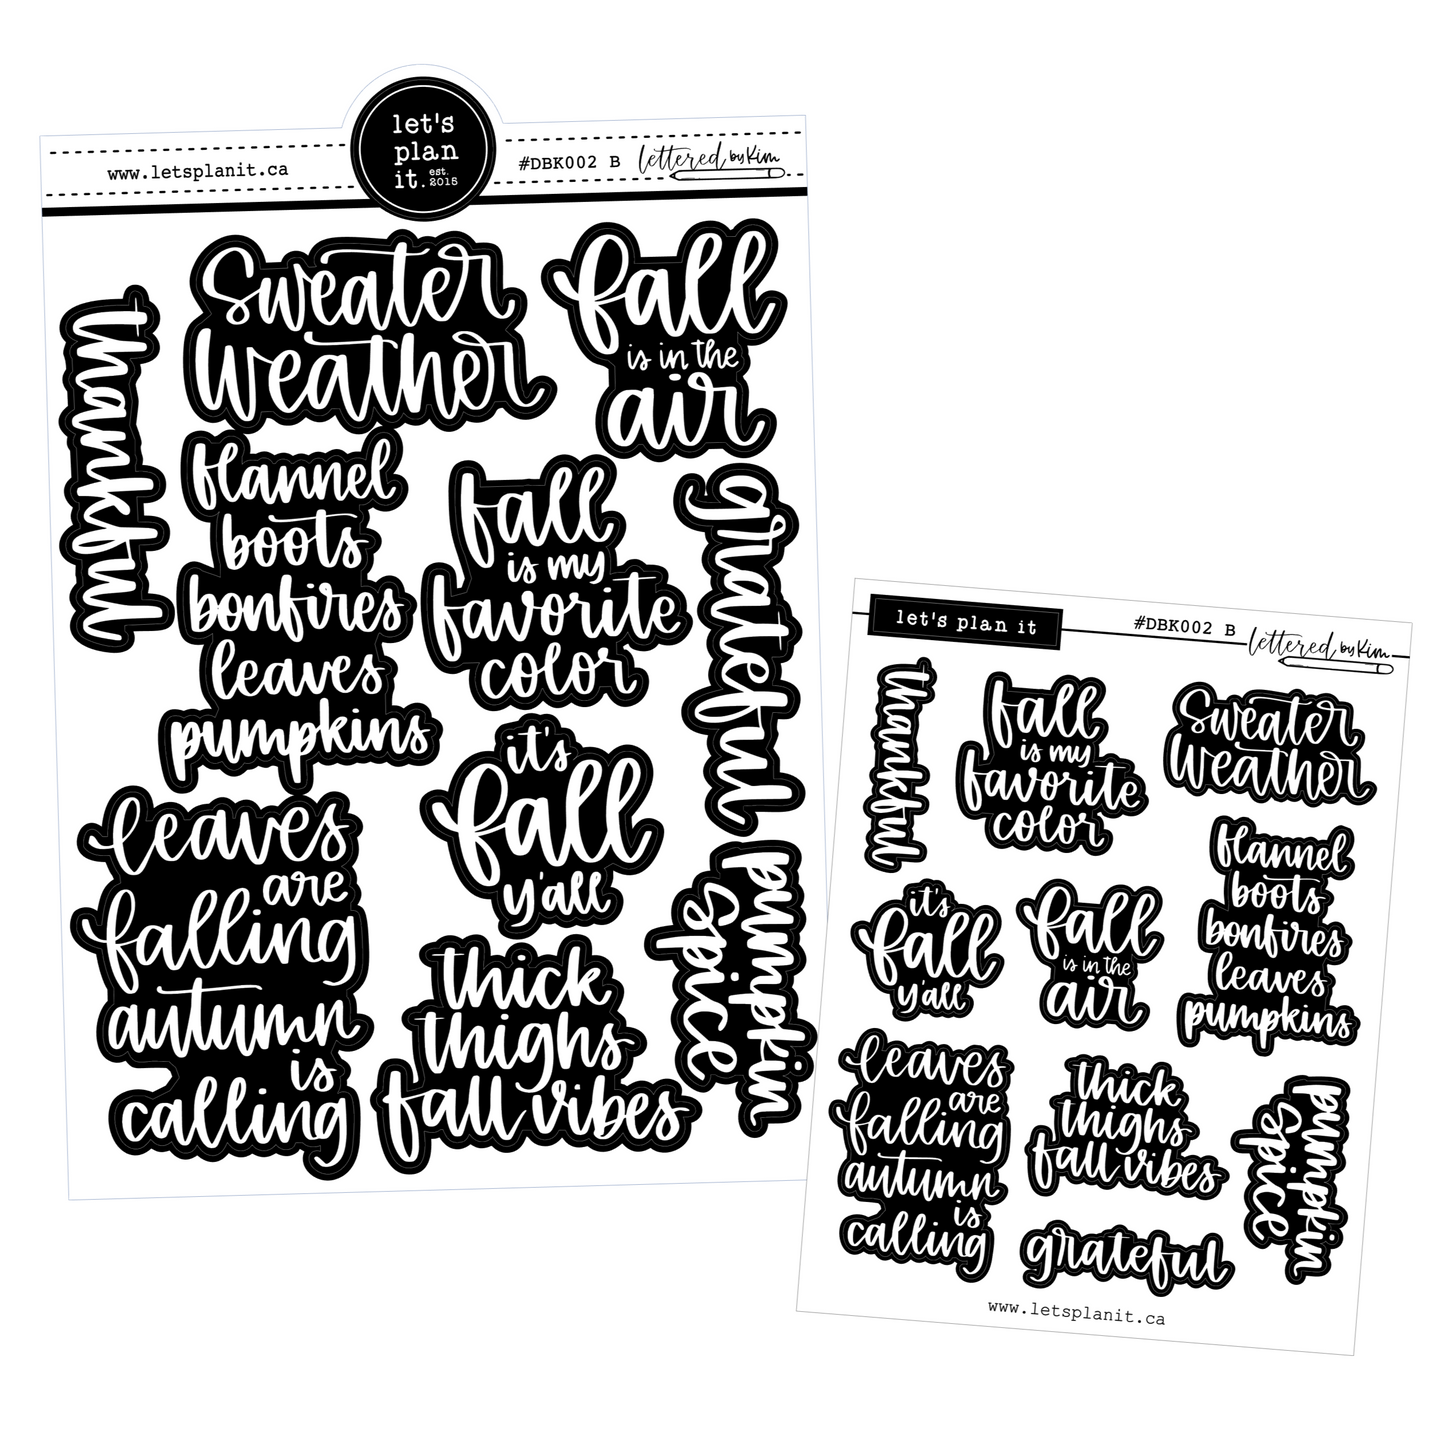 let's
plan
it. est. 2015
www.letsplanit.ca
#DBK002 B
lettered by Kim
thankful
Sweater
Weather
fall
is in the
air
flannel
boots
bonfires
leaves
pumpkins
fall
is my
favorite
color
grateful
it's
fall
y'all
leaves
are
falling
autumn
is
calling
thick
thighs
fall vibes
pumpkin
spice
let's plan it
#DBK002 B
lettered by Kim
thankful
fall
is my
favorite
color
Sweater
Weather
it's
fall
y'all
fall
is in the
air
flannel
boots
bonfires
leaves
pumpkins
leaves
are
falling
autumn
is
calling
thick
thighs
fall vibes
pumpkin
spice
grateful
www.letsplanit.ca